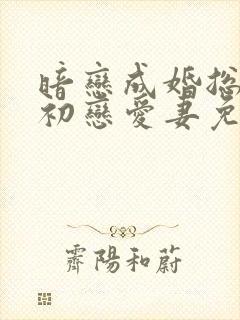 暗戀成婚總
初戀愛妻免
霽陽和蔚